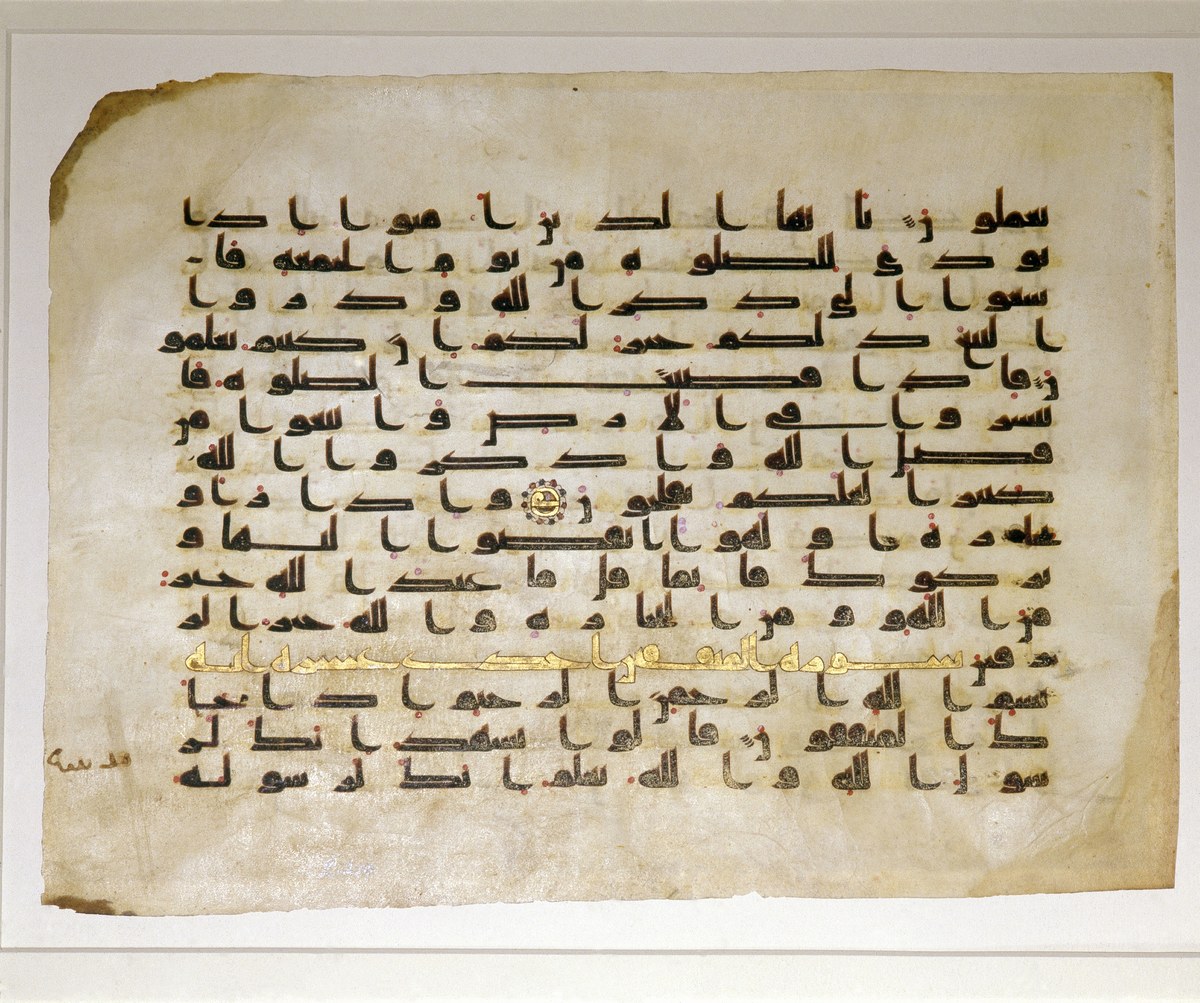 تعملون يايها الذين امنوا اذا
نودي للصلوة من يوم الجمعة فا
سعوا الى ذكر الله وذروا
البيع ذلكم خير لكم ان كنتم تعلمو
ن فاذا قضيت الصلوة فا
نتشروا في الارض وابتغوا من
فضل الله واذكروا الله
كثيرا لعلكم تفلحون واذا راو
تجرة او لهوا انفضوا اليها و
تركوك قائما قل ما عند الله خير
من اللهو ومن التجرة والله خير الر
زقين سورة المنفقين احدى عشرة اية
بسم الله الرحمن الرحيم اذا جا
ك المنفقون قالوا نشهد انك لر
سول الله والله يعلم انك لرسوله